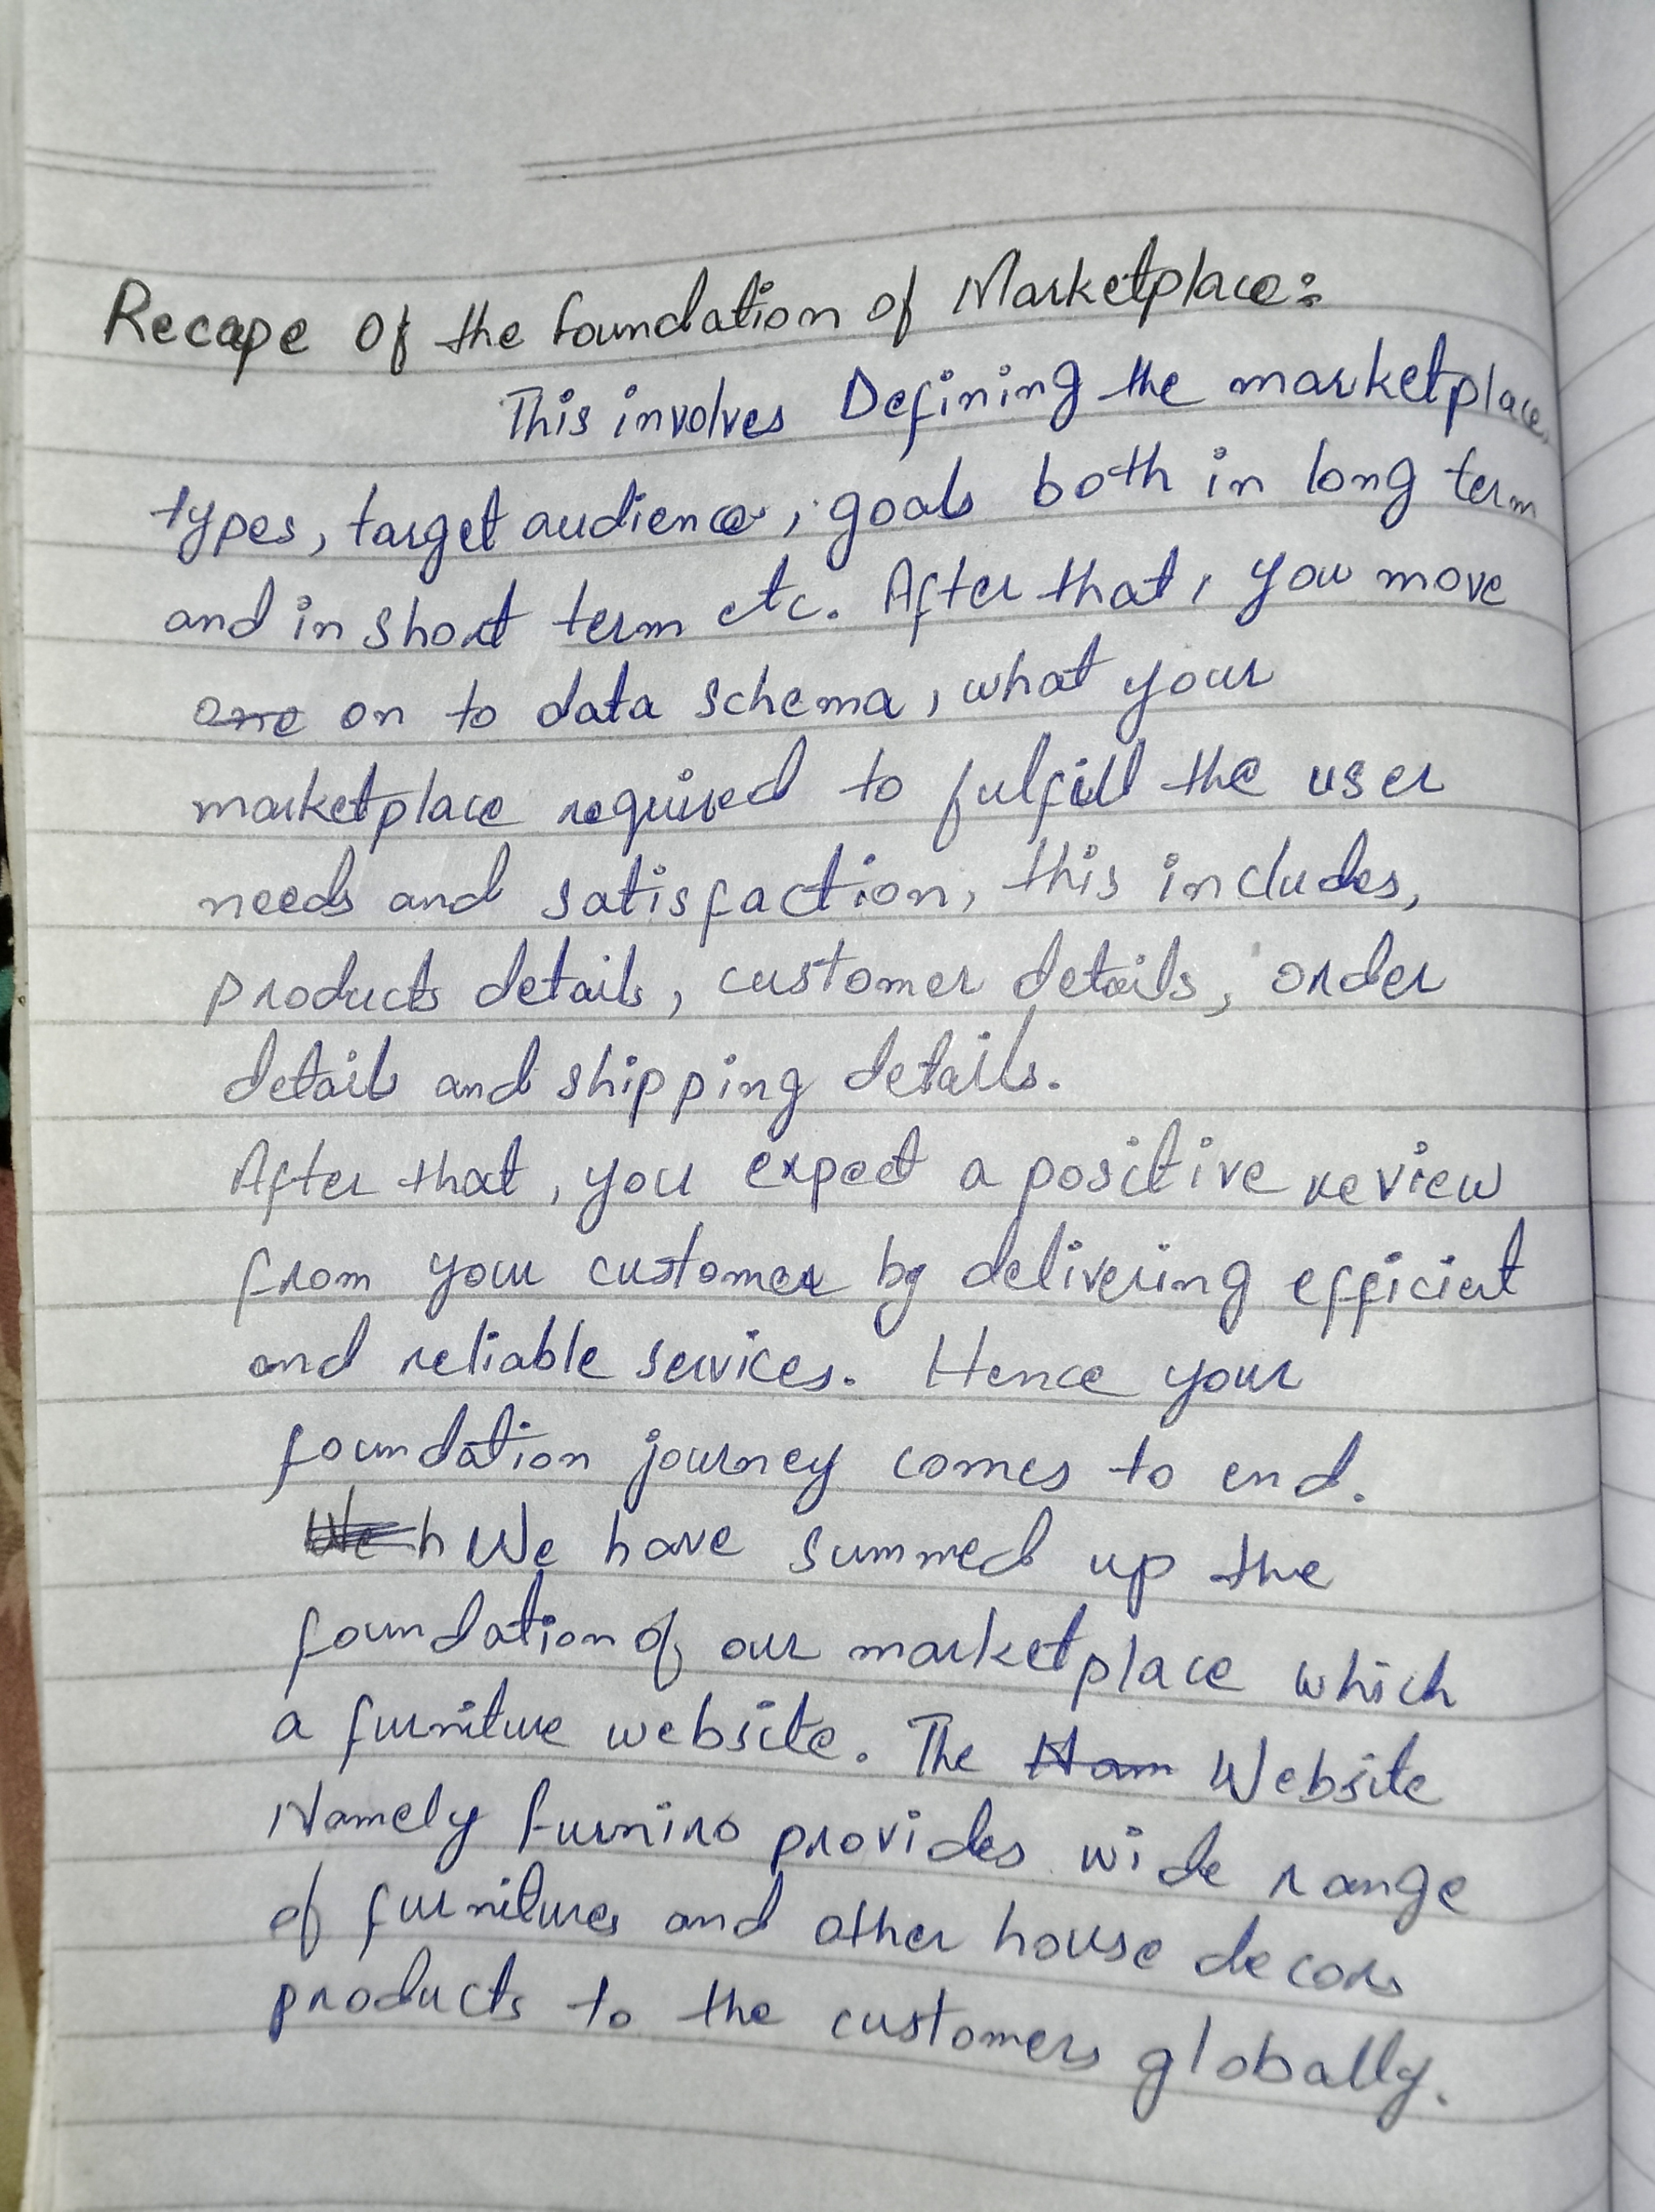 Recape Of the foundation of Marketplace:
This involves Defining the marketplace
types, target audience, goals both in long term
and in short term etc. After that, you move
one on to data schema, what your
marketplace required to fulfill the user
needs and satisfaction, this includes,
products details, customer details, order
details and shipping details.
After that, you expect a positive review
from your customer by delivering efficient
and reliable services. Hence your
foundation journey comes to end.
We h We have summed up the
foundation of our marketplace which
a furniture website. The Nam Website
Namely furniro provides wide range
of furnitures and other house decors
products to the customers globally.